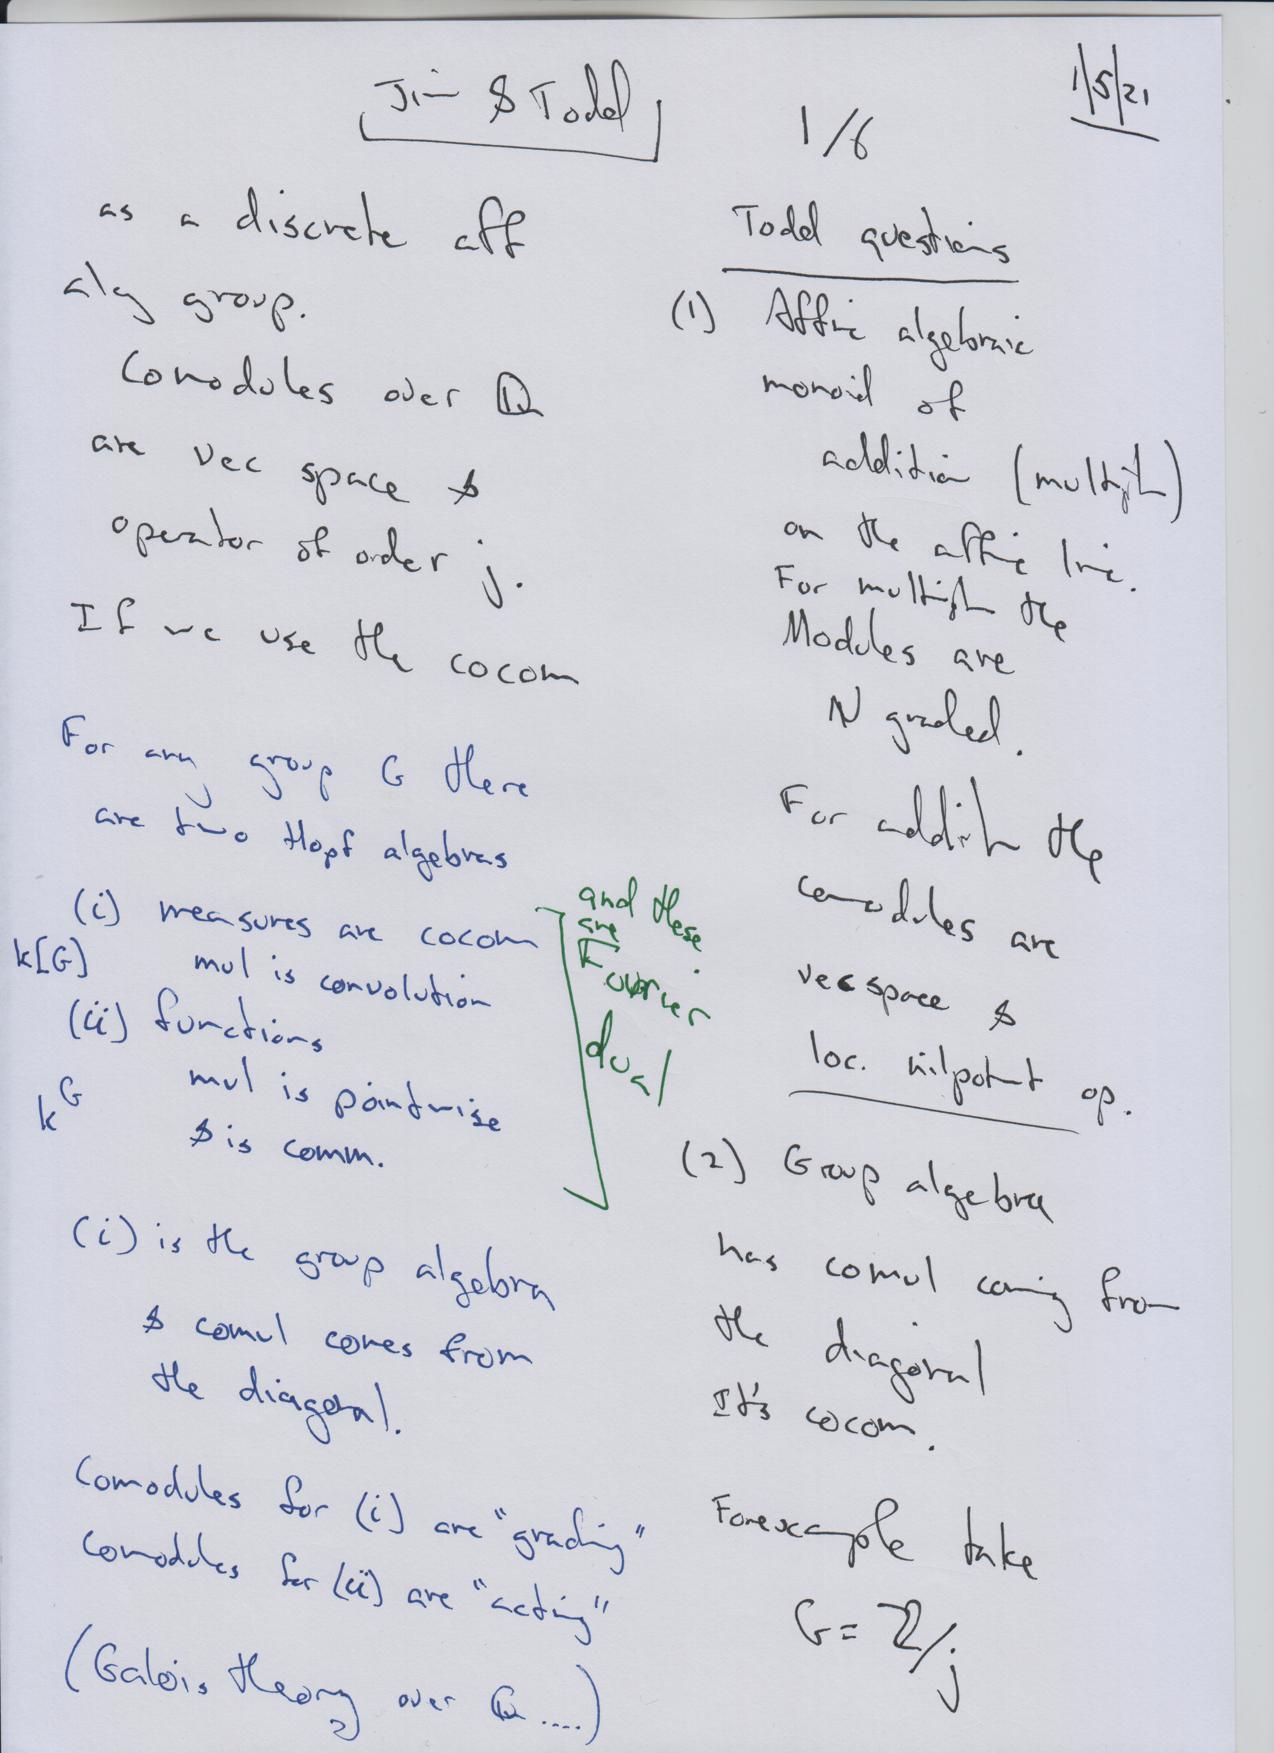 Jim & Todd
1/6
1/5/21
as a discrete aff
alg group.
Comodules over Q
are vec space &
operator of order j.
If we use the cocom
For any group G there
are two Hopf algebras
(i) measures are cocom
k[G] mul is convolution
(ii) functions
mul is pointwise
k^G
& is comm.
and these
are
Fourier
dual
(i) is the group algebra
& comul comes from
the diagonal.
Comodules for (i) are "grading"
Comodules for (ii) are "acting"
(Galois theory over Q ....)
Todd questions
(1) Affine algebraic
monoid of
addition (multipl)
on the affine line.
For multipl the
Modules are
N graded.
For addith the
comodules are
vec space &
loc. nilpotent op.
(2) Group algebra
has comul coming from
the diagonal
It's cocom.
For example take
G = Z/j